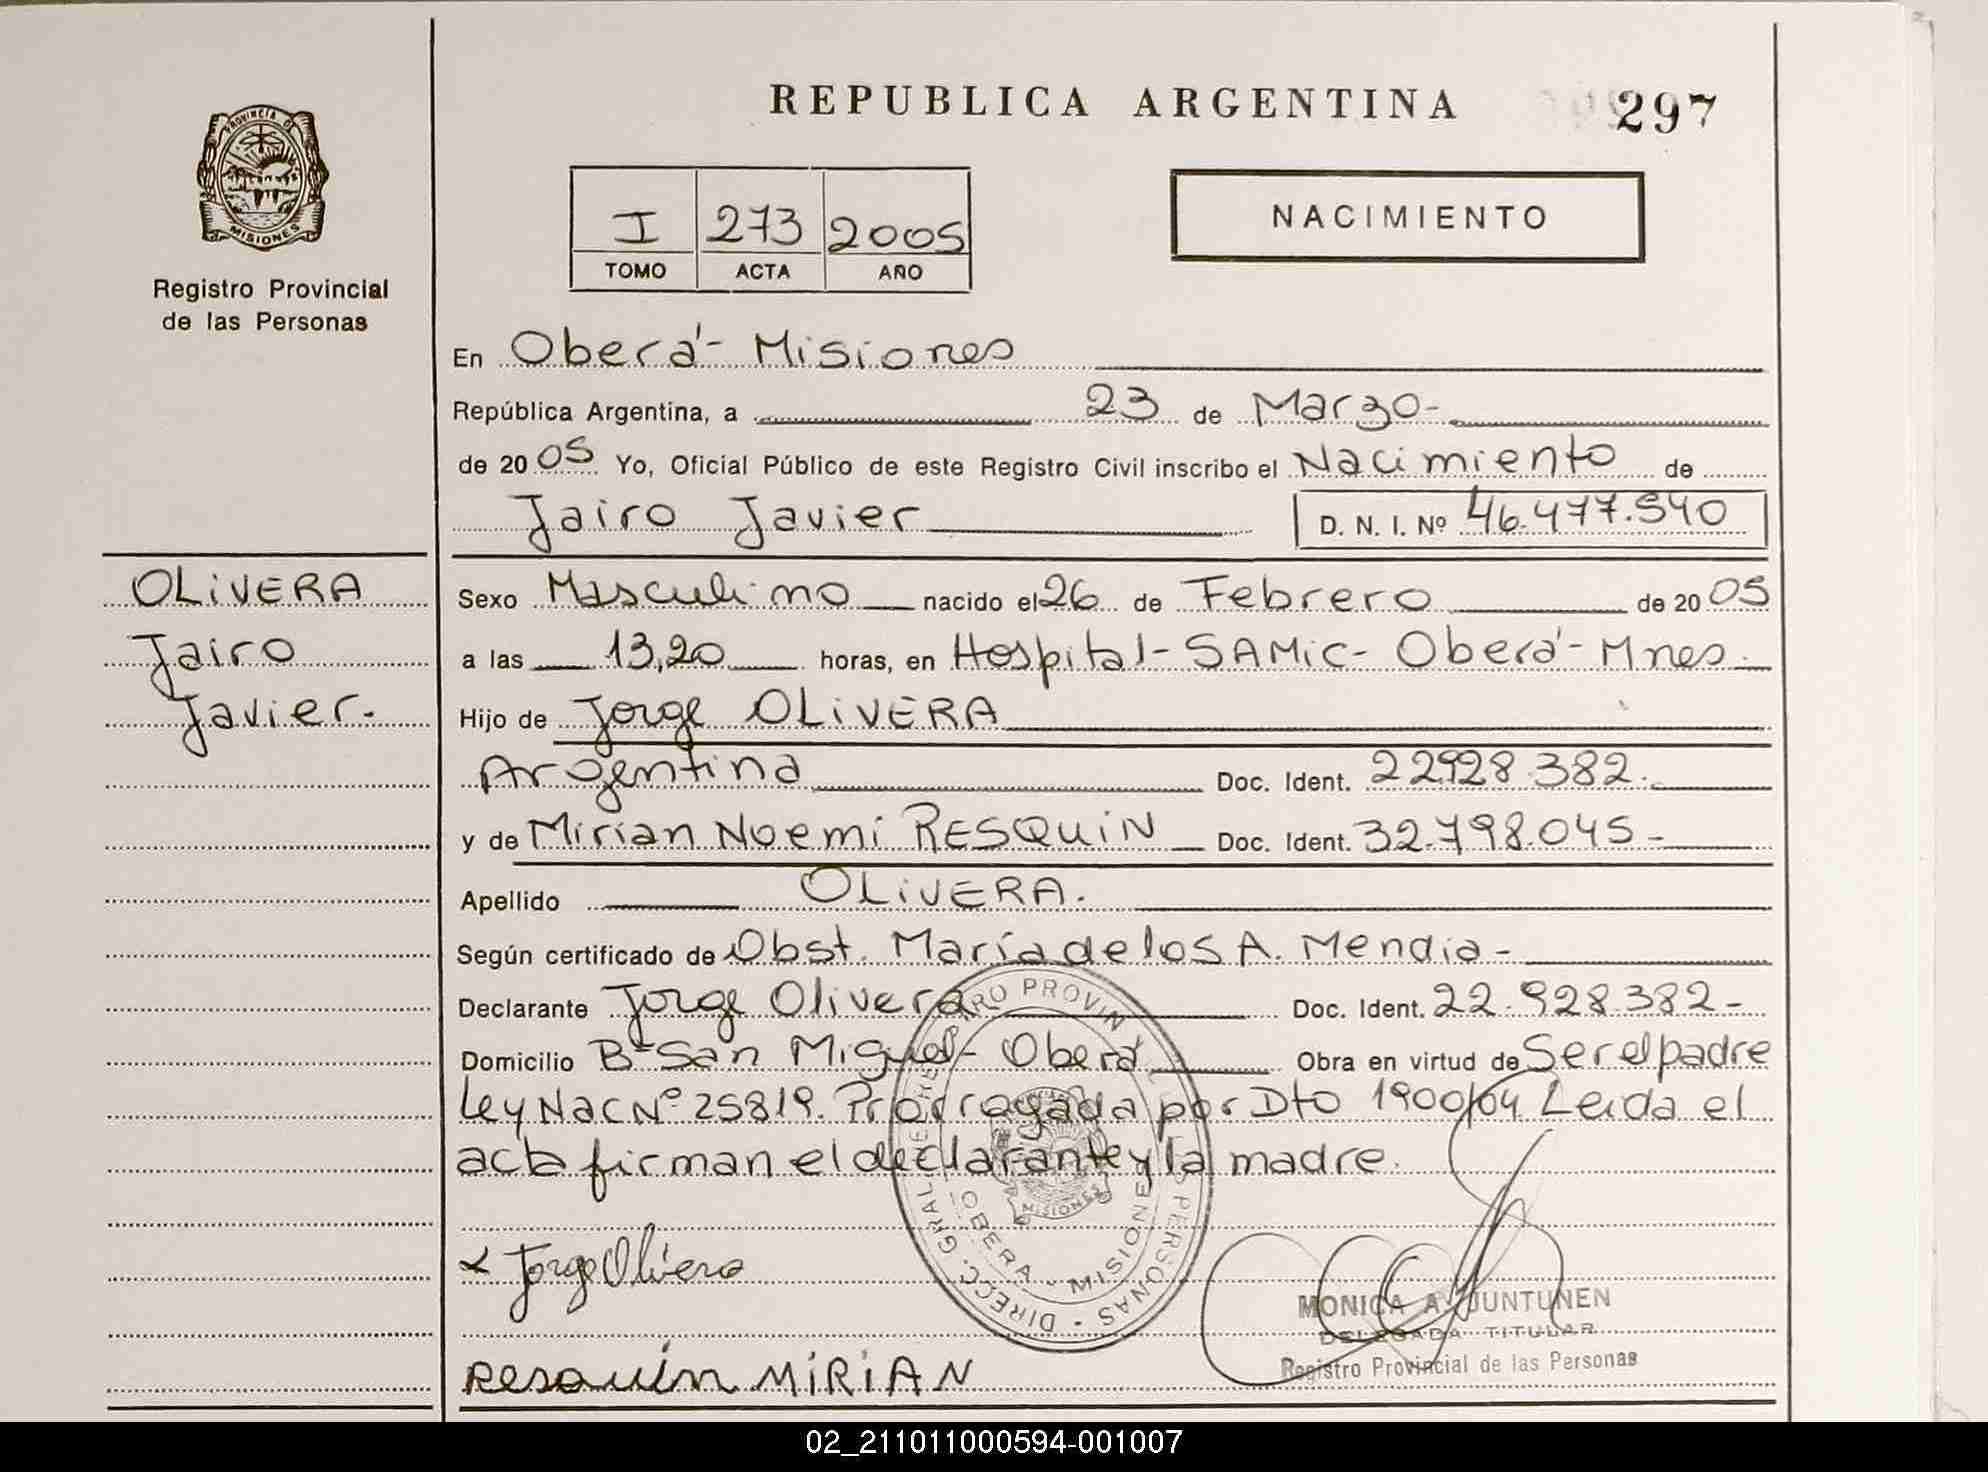 REPUBLICA ARGENTINA
297
PROVINCIA DE
MISIONES
Registro Provincial
de las Personas
I 273 2005
TOMO ACTA AÑO
NACIMIENTO
En Oberá - Misiones
República Argentina, a 23 de Marzo-
de 2005 Yo, Oficial Público de este Registro Civil inscribo el Nacimiento de
Jairo Javier D. N. I. Nº 46.477.540
OLIVERA
Jairo
Javier.
Sexo Masculino nacido el 26 de Febrero de 2005
a las 13,20 horas, en Hospital - SAMic - Oberá - Mnes.
Hijo de Jorge OLIVERA
Argentina Doc. Ident. 22928.382.
y de Mirian Noemi RESQUIN Doc. Ident. 32.798.045-
Apellido OLIVERA.
Según certificado de Obst. María de los A. Mendia -
Declarante Jorge Olivera Doc. Ident. 22.928.382-
Domicilio Bº San Miguel - Oberá Obra en virtud de Ser el padre
Ley Nac Nº 25819. Prorrogada por Dto 1900/04 Leida el
acta firman el declarante y la madre.
Jorge Olivera
Resquín MIRIAN
OBERA - MISIONES
MONICA A. JUNTUNEN
DELEGADA TITULAR
Registro Provincial de las Personas
02_211011000594-001007